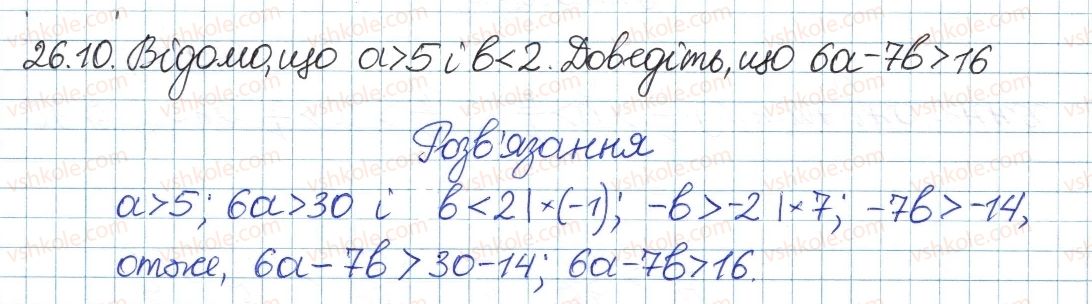 26.10. Відомо, що a>5 і b<2. Доведіть, що 6a-7b>16
Розв'язання
a>5; 6a>30 і b<2 |×(-1); -b>-2 |×7; -7b>-14,
отже, 6a-7b>30-14; 6a-7b>16.